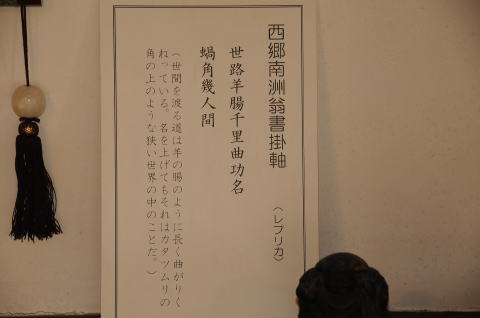 西郷南洲翁書掛軸
（レプリカ）
世路羊腸千里曲功名
蝸角幾人間
（世間を渡る道は羊の腸のように長く曲がりく
ねっている。名を上げてもそれはカタツムリの
角の上のような狭い世界の中のことだ。）